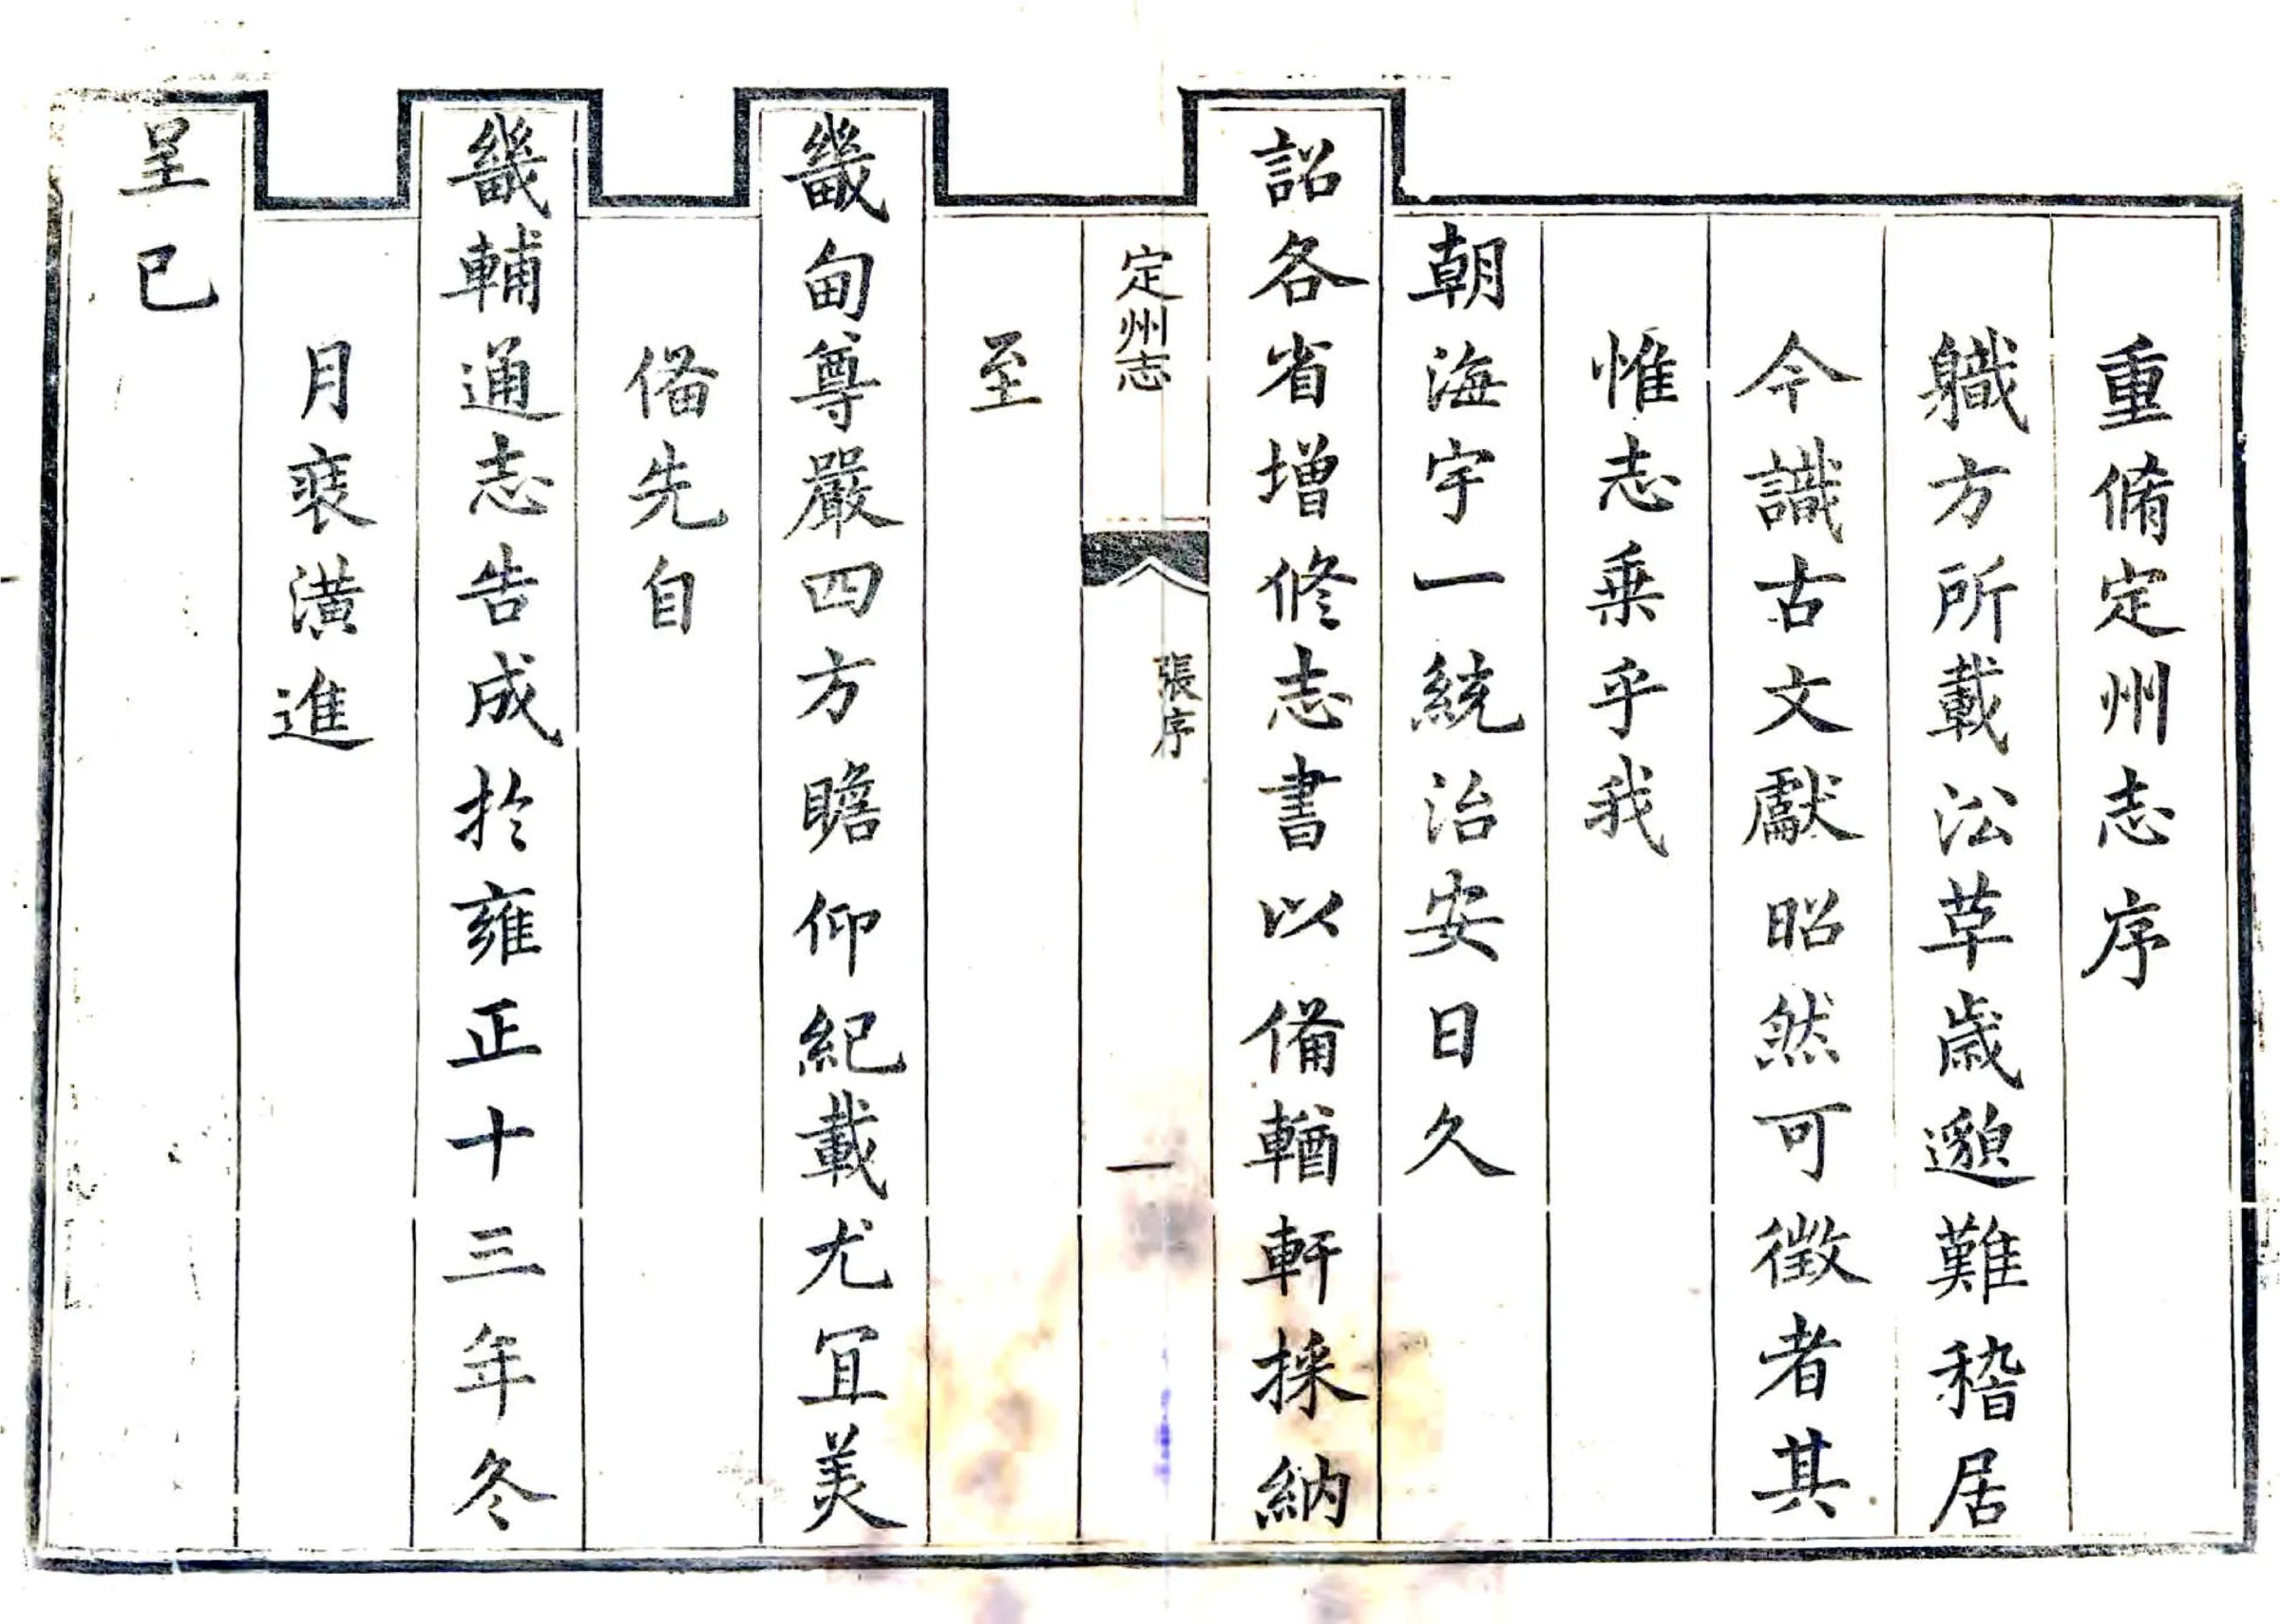 重脩定州志序
軄方所載㳂革歲邈難稽居
今識古文獻昭然可徵者其
惟志乗乎我
朝海宇一統治安日久
詔各省增修志書以備輶軒採納
定州志
張序
一
至
畿甸尊嚴四方瞻仰紀載尤冝美
俻先自
畿輔通志告成於雍正十三年冬
月裝潢進
呈已